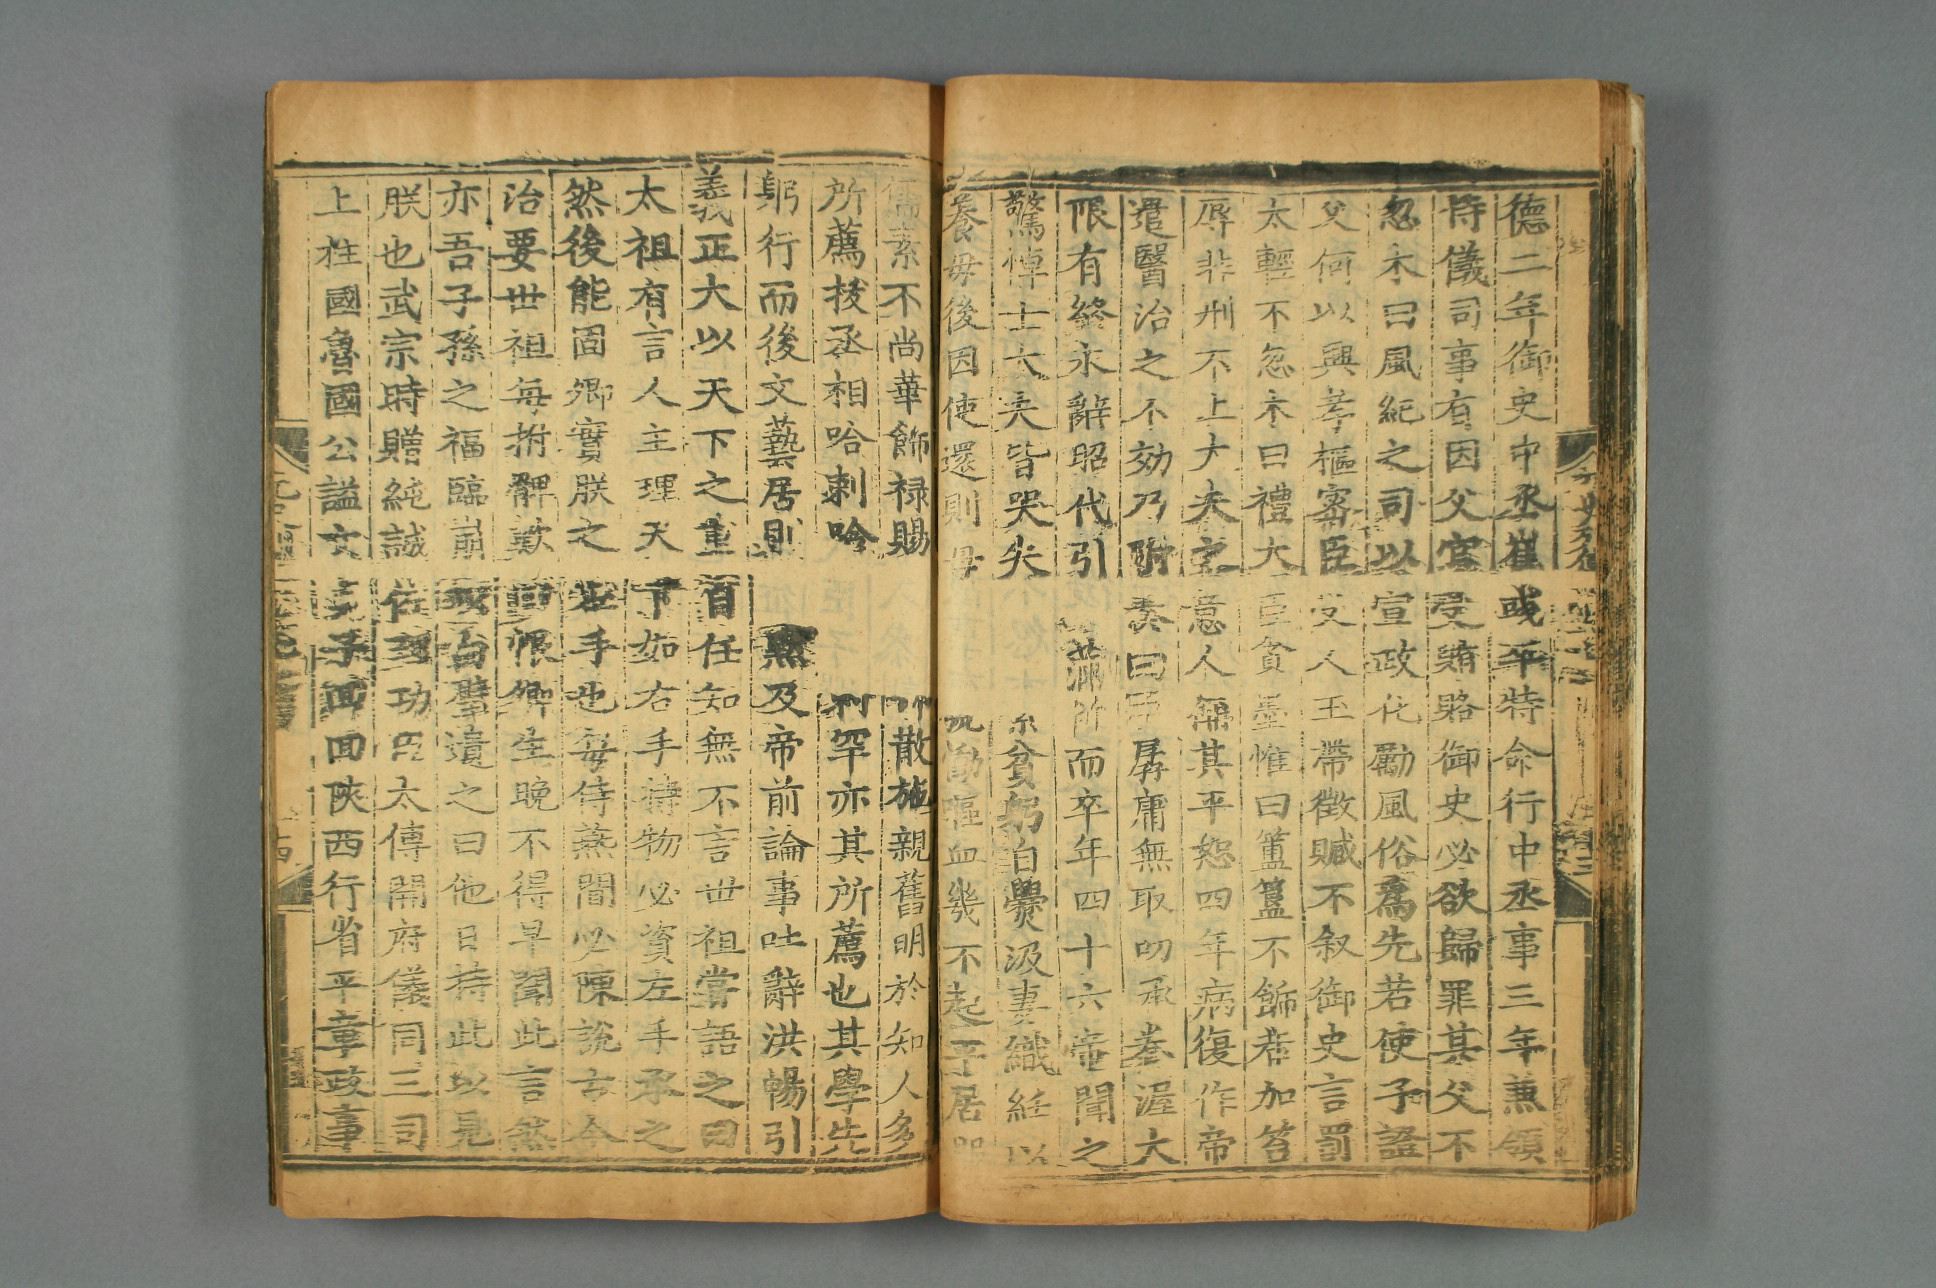 德二年御史中丞崔彧卒特命行中丞事三年兼領
侍儀司事有因父官受賄賂御史必欲歸罪其父不
忽木曰風紀之司以宣政化勵風俗爲先若使子證
父何以興孝樞密臣受人玉帶徵贓不叙御史言罰
太輕不忽木曰禮大臣貪墨惟曰簠簋不飾若加笞
辱非刑不上大夫之意人稱其平恕四年病復作帝
遣醫治之不効乃附奏曰臣孱庸無取叨承眷渥大
限有終永辭昭代引滿而卒年四十六帝聞之
驚悼士大夫皆哭失 貧躬自爨汲妻織絍以
養母後因使還則母 慟嘔血幾不起平居
儒素不尚華飾祿賜 散施親舊明於知人多
所薦拔丞相哈剌哈 剌罕亦其所薦也其學先
躬行而後文藝居則 默及帝前論事吐辭洪暢引
義正大以天下之重 自任知無不言世祖嘗語之曰
太祖有言人主理天下如右手持物必資左手承之
然後能固卿實朕之左手也每侍燕間必陳說古今
治要世祖每拊髀歎曰恨卿生晚不得早聞此言然
亦吾子孫之福臨崩以白璧遺之曰他日持此以見
朕也武宗時贈純誠佐理功臣太傅開府儀同三司
上柱國魯國公謚文 子回回陝西行省平章政事